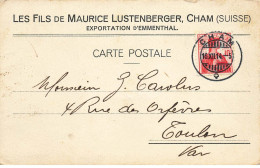 LES FILS DE MAURICE LUSTENBERGER, CHAM (SUISSE)
EXPORTATION D'EMMENTHAL.
CHAM
CARTE POSTALE
Monsieur G. Carolus
4 Rue des Orfèvres
Toulon
Var